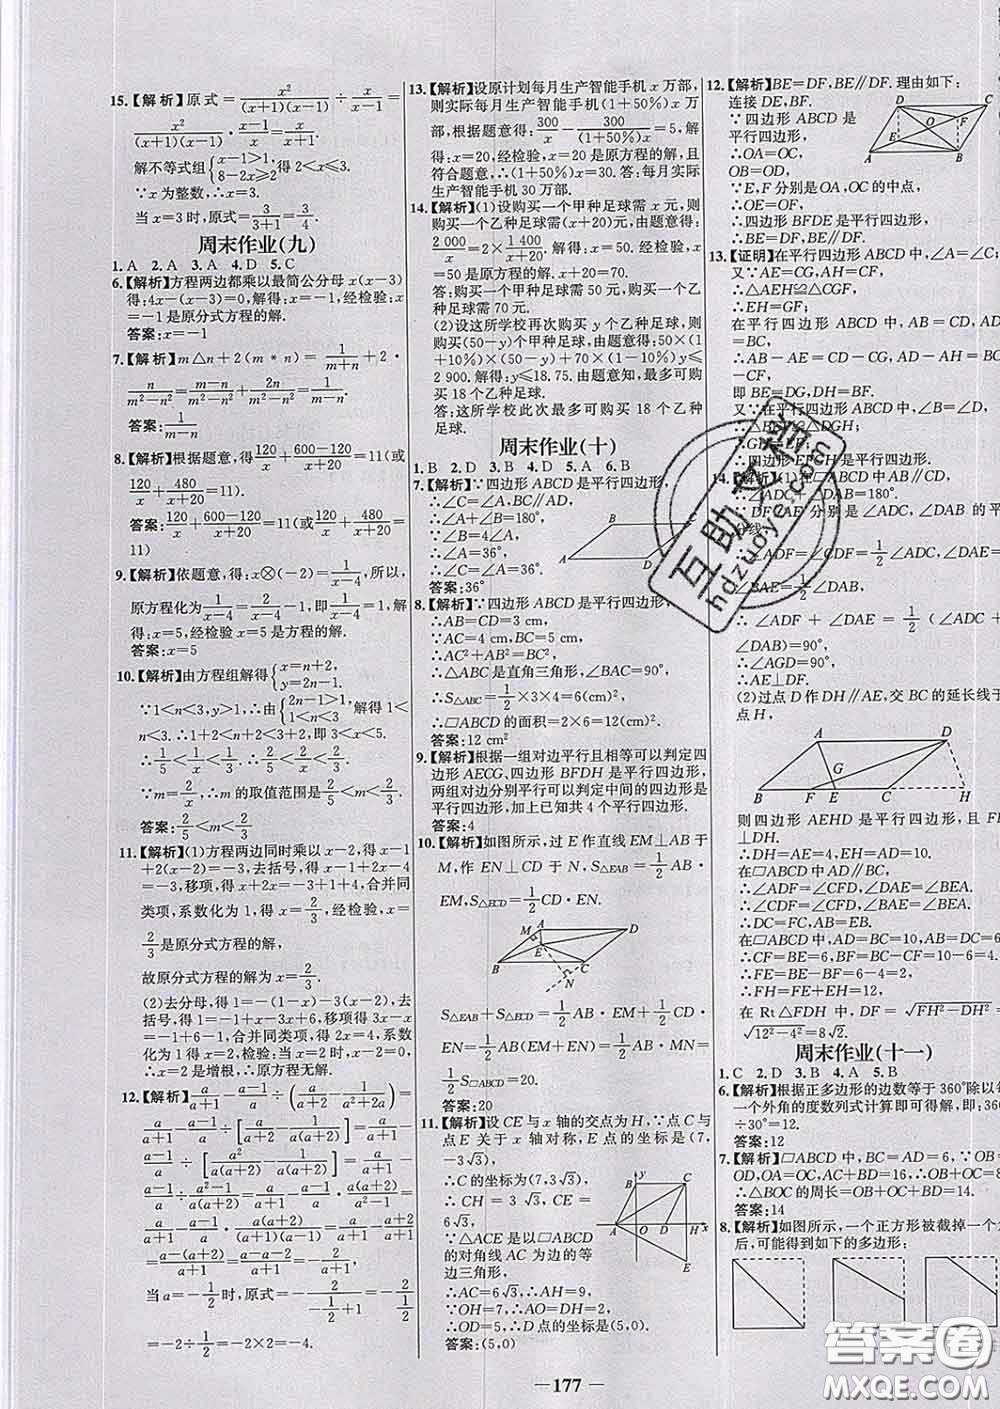 15.【解析】原式=x²/((x+1)(x-1))÷x/(x-1)=
x²/((x+1)(x-1))·(x-1)/x=x/(x+1).
解不等式组{x-1>1, 8-2x≥2}得2<x≤3.
∵x为整数,∴x=3.
当x=3时,原式=3/(3+1)=3/4.
周末作业(九)
1.A 2.A 3.A 4.D 5.C
6.【解析】方程两边都乘以最简公分母x(x-3)
得:4x-(x-3)=0,解得:x=-1,经检验:x
=-1是原分式方程的解.
答案:x=-1
7.【解析】m△n+2(m*n)=1/(m+n)+2·
n/(m²-n²)=(m-n)/(m²-n²)+2n/(m²-n²)=1/(m-n).
答案:1/(m-n)
8.【解析】根据题意,得:120/x+(600-120)/(x+20)=11(或
120/x+480/(x+20)=11).
答案:120/x+(600-120)/(x+20)=11(或120/x+480/(x+20)=
11)
9.【解析】依题意,得:x⊗(-2)=1/(x-4),所以,
原方程化为1/(x-4)=2/(x-4)-1,即1/(x-4)=1,解
得:x=5,经检验x=5是方程的解.
答案:x=5
10.【解析】由方程组解得{x=n+2, y=2n-1.
∵1<n<3,y>1,∴由{2n-1>1 1<n<3,解得1<n
<3.∴1+2<n+2<3+2,即3<x<5.
∴1/5<1/x<1/3,∴2/5<2/x<2/3.
∵m=2/x,∴m的取值范围是2/5<m<2/3.
答案:2/5<m<2/3
11.【解析】(1)方程两边同时乘以x-2,得x-1
+2(x-2)=-3,去括号,得x-1+2x-4
=-3,移项,得x+2x=-3+1+4,合并同
类项,系数化为1,得x=2/3,经检验,x=
2/3是原分式方程的解,
故原分式方程的解为x=2/3.
(2)去分母,得1=-(1-x)-3(x-2),去
括号,得1=-1+x-3x+6,移项得3x-x
=-1+6-1,合并同类项,得2x=4,系数
化为1,得x=2,检验:当x=2时,x-2=0,
∴x=2是增根,∴原方程无解.
12.【解析】a/(a+1)-(a-1)/a÷(a/(a+2)-1/(a²+2a))=
a/(a+1)-(a-1)/a÷[a/(a+2)-1/(a(a+2))]=a/(a+1)-
(a-1)/a÷[a²/(a(a+2))-1/(a(a+2))]=a/(a+1)-
(a-1)/a÷(a²-1)/(a(a+2))=a/(a+1)-(a-1)/a·a(a+2)/(a²-1)=
a/(a+1)-(a-1)/a·a(a+2)/((a+1)(a-1))=a/(a+1)-(a+2)/(a+1)
=(a-a-2)/(a+1)=-2/(a+1).
当a=-1/2时,原式=-2/(-1/2+1)=-2/(1/2)
=-2÷1/2=-2×2=-4.
13.【解析】设原计划每月生产智能手机x万部,
则实际每月生产智能手机(1+50%)x万
部,根据题意得:300/x-300/((1+50%)x)=5,解
得:x=20,经检验,x=20是原方程的解,且
符合题意,∴(1+50%)x=30.答:每月实际
生产智能手机30万部.
14.【解析】(1)设购买一个甲种足球需x元,则
购买一个乙种足球需(x+20)元,由题意得:
2 000/x=2×1 400/(x+20),解得:x=50,经检验,x
=50是原方程的解,x+20=70.
答:购买一个甲种足球需50元,购买一个乙
种足球需70元.
(2)设这所学校再次购买y个乙种足球,则
购买(50-y)个甲种足球,由题意得:50×(1
+10%)×(50-y)+70×(1-10%)y≤
2 900.解得:y≤18.75.由题意知,最多可购
买18个乙种足球.
答:这所学校此次最多可购买18个乙种
足球.
周末作业(十)
1.B 2.D 3.B 4.D 5.A 6.B
7.【解析】∵四边形ABCD是平行四边形,
∴∠C=∠A,BC∥AD,
∴∠A+∠B=180°,
∵∠B=4∠A,
∴∠A=36°,
∴∠C=∠A=36°.
答案:36°
B
A
8.【解析】∵四边形ABCD是平行四边形,
∴AB=CD=3 cm,
∵AC=4 cm,BC=5 cm,
∴AC²+AB²=BC²,
∴△ABC是直角三角形,∠BAC=90°,
∴S△ABC=1/2×3×4=6(cm)²,
∴□ABCD的面积=2×6=12(cm)².
答案:12 cm²
9.【解析】根据一组对边平行且相等可以判定四
边形AECG、四边形BFDH是平行四边形,
两组对边分别平行可以判定中间的四边形是
平行四边形,加上已知共4个平行四边形.
答案:4
10.【解析】如图所示,过E作直线EM⊥AB于
M,作EN⊥CD于N,S△EAB=1/2AB·
EM,S△ECD=1/2CD·EN.
M A D
E
B C
N
S△EAB+S△ECD=1/2AB·EM+1/2CD·
EN=1/2AB(EM+EN)=1/2AB·MN=
1/2S□ABCD=20.
答案:20
11.【解析】设CE与x轴的交点为H,∵点C与
点E关于x轴对称,E点的坐标是(7,
-3√3),
∴C的坐标为(7,3√3),
∴CH=3√3,CE=
6√3,
∵△ACE是以□ABCD
的对角线AC为边的等
边三角形,
∴AC=6√3,∴AH=9,
∵OH=7,∴AO=DH=2,
∴OD=5,∴D点的坐标是(5,0).
答案:(5,0)
y
B C
A O D H x
E
12.【解析】BE=DF,BE∥DF.理由如下:
连接DE,BF.
∵四边形ABCD是
平行四边形,
∴OA=OC,
∴OB=OD,
∵E,F分别是OA,OC的中点,
∴OE=OF,
∴四边形BFDE是平行四边形,
∴BE=DF,BE∥DF.
D C
O F
E
A B
13.【证明】在平行四边形ABCD中,∠A=∠C,
又∵AE=CG,AH=CF,
∴△AEH≌△CGF,
∴EH=GF.
在平行四边形ABCD中,AB=CD,AD
=BC,
∴AB-AE=CD-CG,AD-AH=BC
-CF,
即BE=DG,DH=BF.
又∵在平行四边形ABCD中,∠B=∠D,
14.
∴∠ADC+∠DAB=180°.
∴∠ADF=∠CDF=1/2∠ADC,∠DAE=
∠BAE=1/2∠DAB,
∴∠ADF+∠DAE=1/2(∠ADC+
∠DAB)=90°.
∴∠AGD=90°,
∴AE⊥DF.
(2)过点D作DH∥AE,交BC的延长线于
点H,
A D
G
B F E C H
则四边形AEHD是平行四边形,且
⊥DH.
∴DH=AE=4,EH=AD=10.
在□ABCD中,AD∥BC,
∴∠ADF=∠CFD,∠DAE=∠BEA.
∴∠CDF=∠CFD,∠BAE=∠BEA.
∴DC=FC,AB=EB.
在□ABCD中,AD=BC=10,AB=DC=6
∴CF=BE=6,BF=BC-CF=10-6=4.
∴FE=BE-BF=6-4=2,
∴FH=FE+EH=12,
在Rt△FDH中,DF=√(FH²-DH²)
=√(12²-4²)=8√2.
周末作业(十一)
1.C 2.D 3.B 4.A 5.B
6.【解析】根据正多边形的边数等于360°除以每
一个外角的度数列式计算即可得解,即:360
÷30°=12.
答案:12
7.【解析】□ABCD中,BC=AD=6,∵OB=
OD,OA=OC,AC+BD=16,∴OB+OC=
∴△BOC的周长=OB+OC+BC=14.
答案:14
8.【解析】如图所示,一个正方形被截掉一个
后,可能得到如下的多边形:
互助文档
hdzuoye.com
答案圈
MXQE.COM
— 177 —